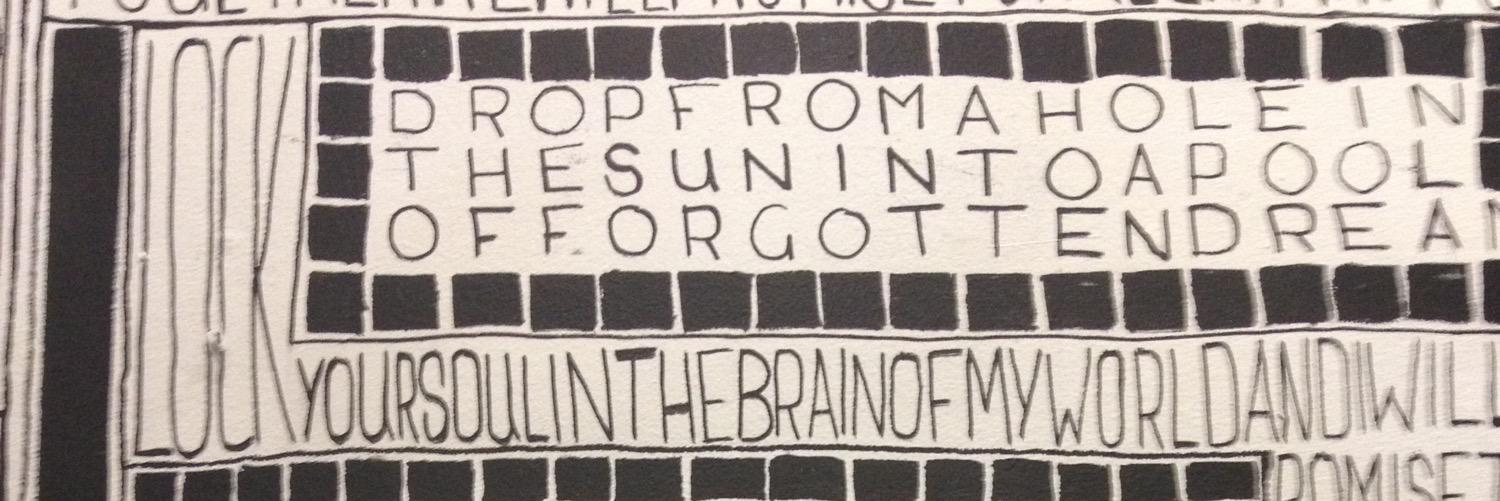 LOCK
DROPFROMAHOLEIN
THESUNINTOAPOOL
OFFORGOTTENDREA
YOURSOULINTHEBRAINOFMYWORLDANDIWILL
PROMISET